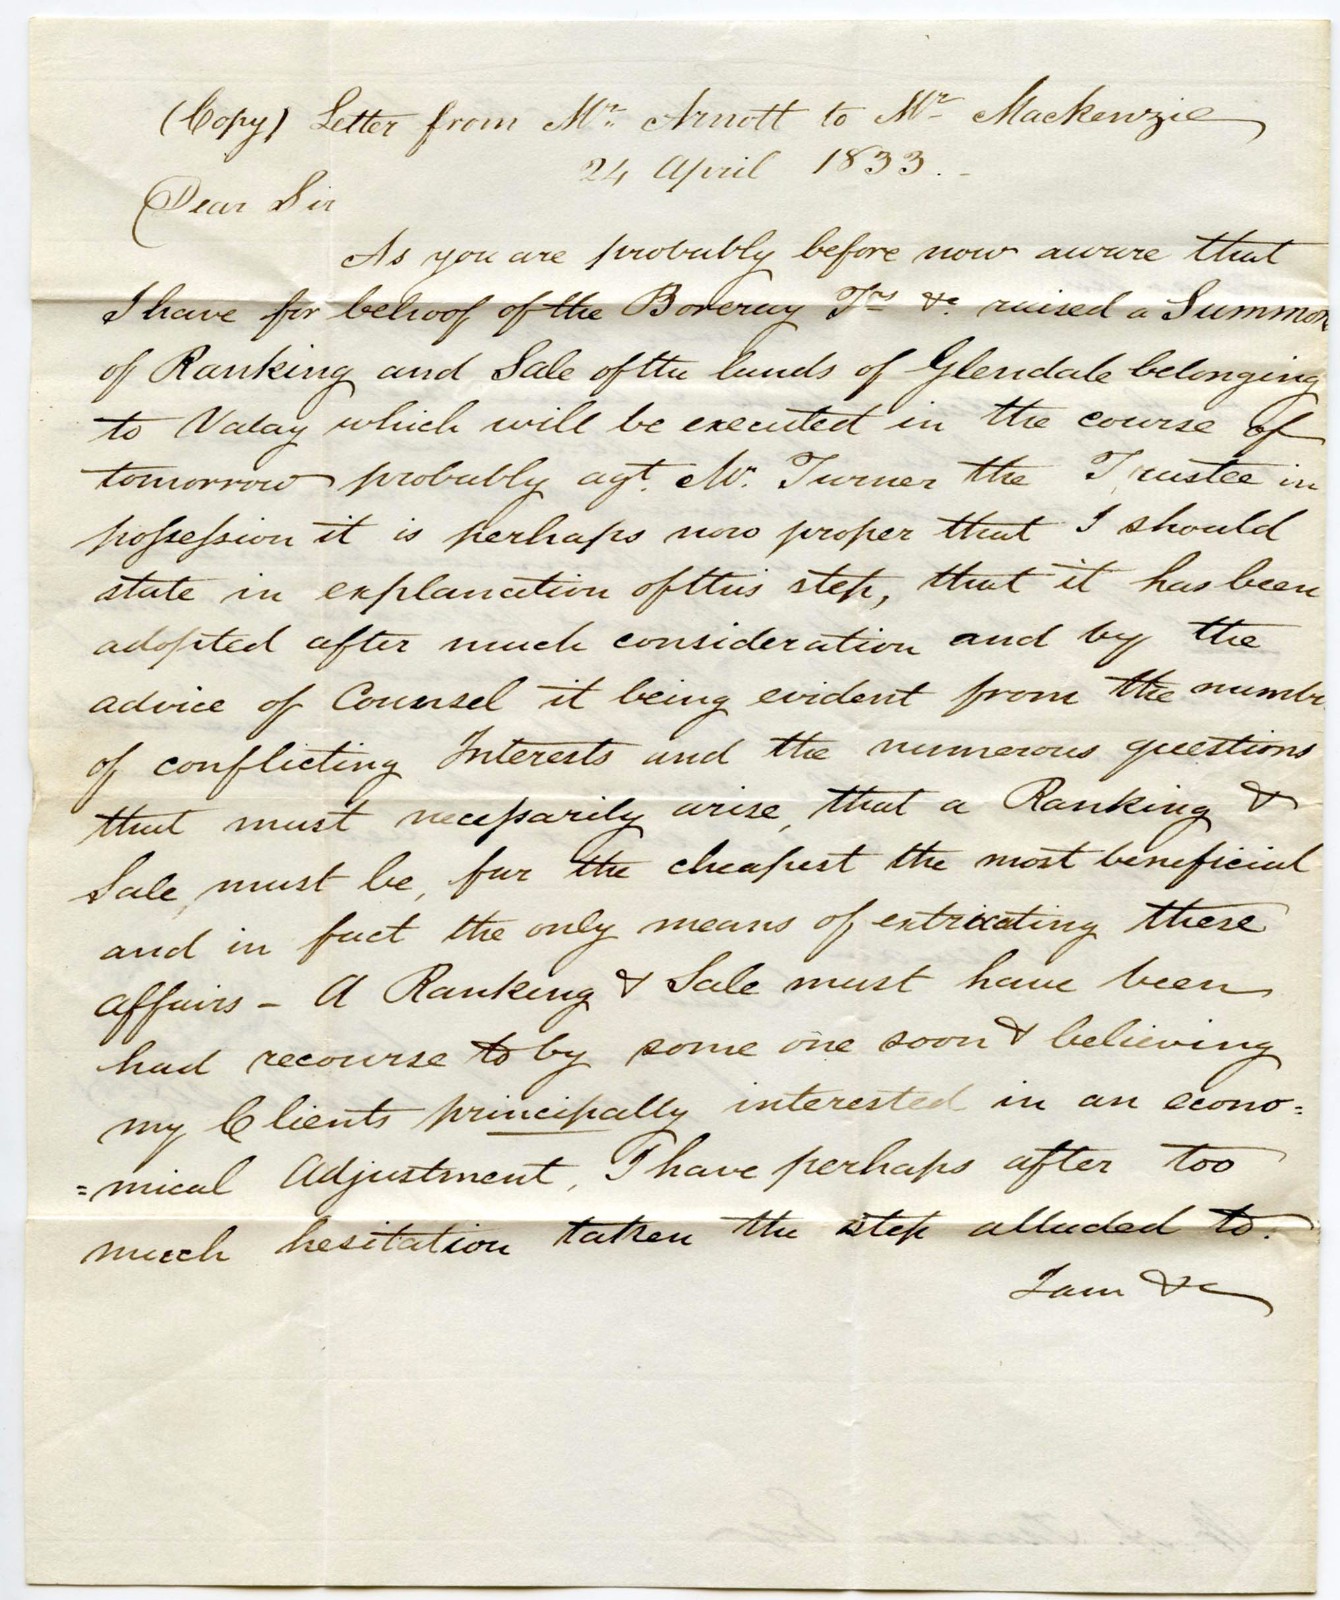 (Copy) Letter from Mr. Arnott to Mr Mackenzie
24 April 1833.
Dear Sir
As you are probably before now aware that
I have for behoof of the Boreray Trs &c. raised a Summon
of Ranking and Sale of the lands of Glendale belonging
to Valay which will be executed in the course of
tomorrow probably agt. Mr. Turner the Trustee in
possession it is perhaps now proper that I should
state in explanation of this step, that it has been
adopted after much consideration and by the
advice of Counsel it being evident from the numbr
of conflicting Interests and the numerous questions
that must necessarily arise, that a Ranking &
Sale, must be, far the cheapest the most beneficial
and in fact the only means of extricating these
affairs - A Ranking & Sale must have been
had recourse to by some one soon & believing
my Clients principally interested in an econo=
=mical Adjustment, I have perhaps after too
much hesitation taken the step alluded to.
I am &c